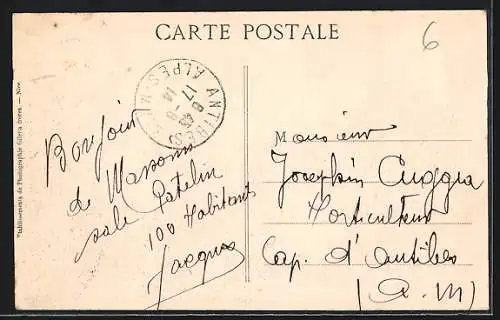 CARTE POSTALE
6
ANTIBES
ALPES-M
Etablissements de Photographie Giletta frères. — Nice
Bonjour
de Massoins
sale Patelin
100 Habitants
Jacques
Monsieur
Josephin Cuggia
Horticulteur
Cap. d'Antibes
(A.M)